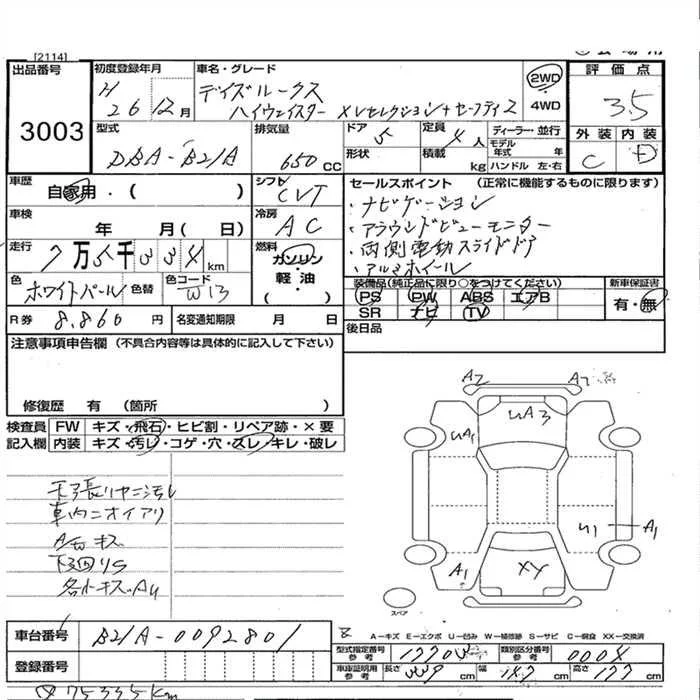 [2114]
出品番号
3003
初度登録年月
H 26年12月
車名・グレード
デイズルークス
ハイウェイスター Xセレクション+セーフティ2
2WD
4WD
評価点
3.5
外装 内装
C D
型式
DBA-B21A
排気量
650 CC
ドア 5
形状
定員 4人
積載 kg
ディーラー・並行
モデル年式 年
ハンドル 左・右
車歴
自家用・( )
シフト
CVT
車検
年 月( 日)
冷房
AC
走行
7万5千334km
燃料
ガソリン・
軽・油
( )
色
ホワイトパール
色替
色コード
W13
R券 8,860円
名変通知期限 月 日
セールスポイント (正常に機能するものに限ります)
・ナビゲーション
・アラウンドビューモニター
・両側電動スライドドア
・アルミホイール
装備品(純正品に限り○をつけてください)
PS PW ABS エアB
SR ナビ TV
新車保証書
有・無
後日品
注意事項申告欄 (不具合内容等は具体的に記入して下さい)
修復歴 有 (箇所 )
検査員
記入欄
FW キズ・飛石・ヒビ割・リペア跡・×要
内装 キズ・汚レ・コゲ・穴・スレ・キレ・破レ
天張リヤニ汚レ
車内ニオイアリ
下回りS
各小キズ・AU
A2
A2
UA3
UA1
U1
A1
A1
XY
スペア
A−キズ E−エクボ U−凹み W−補修跡 S−サビ C−腐食 XX−交換済
車台番号 B21A-0092801
登録番号
型式指定番号
参考
類別区分番号
参考
0004
車庫証明用
参考
長さ 339cm
幅 147cm
高さ 177cm
75335km